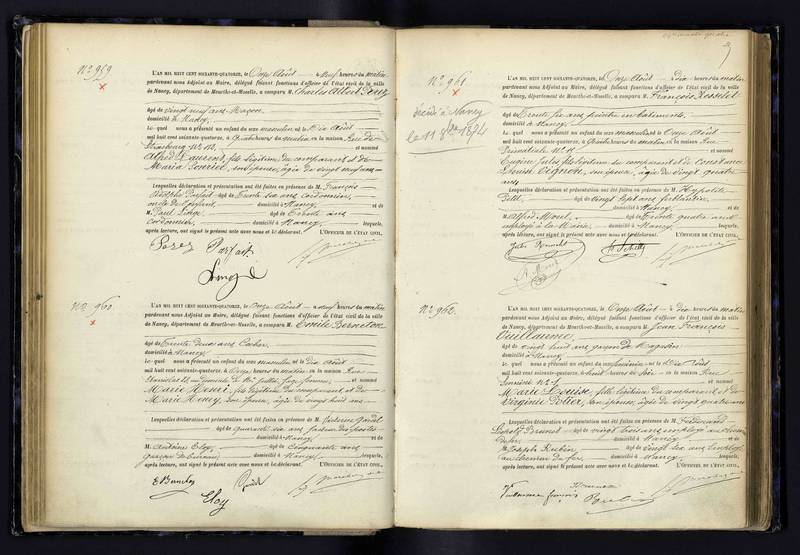 N° 959
L'AN MIL HUIT CENT SOIXANTE-QUATORZE, le Onze Août à Neuf heures du matin
pardevant nous Adjoint au Maire, délégué faisant fonctions d'officier de l'état civil de la ville
de Nancy, département de Meurthe-et-Moselle, a comparu M. Charles Albert
âgé de vingt neuf ans Maçon
domicilié à Nancy
lequel nous a présenté un enfant du sexe masculin né le Dix Août
mil huit cent soixante-quatorze, à Quatre heures du matin en la maison Rue de
Strasbourg N° et nommé
Alfred Laurent, fils légitime du comparant et de
Maria son épouse, âgée de vingt neuf ans
Lesquelles déclaration et présentation ont été faites en présence de M. François
Parfait âgé de Trente six ans cordonnier,
oncle de l'enfant domicilié à Nancy et de
M. Paul âgé de Trente ans
cordonnier domicilié à Nancy lesquels,
après lecture, ont signé le présent acte avec nous et le déclarant. L'OFFICIER DE L'ÉTAT CIVIL,
Parfait
N° 960
L'AN MIL HUIT CENT SOIXANTE-QUATORZE, le Onze Août à neuf heures du matin
pardevant nous Adjoint au Maire, délégué faisant fonctions d'officier de l'état civil de la ville
de Nancy, département de Meurthe-et-Moselle, a comparu M. Emile
âgé de Trente deux ans Cocher
domicilié à Nancy
lequel nous a présenté un enfant du sexe masculin né le Dix Août
mil huit cent soixante-quatorze, à Onze heures du matin en la maison Rue
Stanislas et nommé
Marie Henri, fils légitime du comparant et de
Marie Henry, son épouse, âgée de vingt huit ans
Lesquelles déclaration et présentation ont été faites en présence de M.
âgé de Quarante six ans facteur des postes
domicilié à Nancy et de
M. Antoine Eloy âgé de Cinquante ans
garçon de bureau domicilié à Nancy lesquels,
après lecture, ont signé le présent acte avec nous et le déclarant. L'OFFICIER DE L'ÉTAT CIVIL,
Eloy
N° 961
décédé à Nancy
le 11 8bre 1874
L'AN MIL HUIT CENT SOIXANTE-QUATORZE, le Onze Août à dix heures du matin
pardevant nous Adjoint au Maire, délégué faisant fonctions d'officier de l'état civil de la ville
de Nancy, département de Meurthe-et-Moselle, a comparu M. François
âgé de Trente six ans peintre en bâtiments
domicilié à Nancy
lequel nous a présenté un enfant du sexe masculin né le Onze Août
mil huit cent soixante-quatorze, à Quatre heures du matin en la maison Rue
Primatiale N° 11 et nommé
Eugène Jules, fils légitime du comparant et de Constance
Louise Vignon, son épouse, âgée de vingt quatre
ans
Lesquelles déclaration et présentation ont été faites en présence de M. Hypolite
Petit âgé de vingt sept ans ferblantier
domicilié à Nancy et de
M. Alfred Morel âgé de Trente quatre ans
employé à la Mairie domicilié à Nancy lesquels,
après lecture, ont signé le présent acte avec nous et le déclarant. L'OFFICIER DE L'ÉTAT CIVIL,
N° 962
L'AN MIL HUIT CENT SOIXANTE-QUATORZE, le Onze Août à Dix heures du matin
pardevant nous Adjoint au Maire, délégué faisant fonctions d'officier de l'état civil de la ville
de Nancy, département de Meurthe-et-Moselle, a comparu M. Jean François
Vuillaume
âgé de vingt huit ans garçon de Magasin
domicilié à Nancy
lequel nous a présenté un enfant du sexe féminin né le Dix Août
mil huit cent soixante-quatorze, à huit heures du soir en la maison Rue
et nommé
Marie Louise, fille légitime du comparant et de
Virginie Potier, son épouse, âgée de vingt quatre ans
Lesquelles déclaration et présentation ont été faites en présence de M. Ferdinand
Léopold âgé de vingt trois ans employé au chemin
de fer domicilié à Nancy et de
M. Joseph Rubin âgé de vingt six ans employé
au chemin de fer domicilié à Nancy lesquels,
après lecture, ont signé le présent acte avec nous et le déclarant. L'OFFICIER DE L'ÉTAT CIVIL,
Vuillaume françois